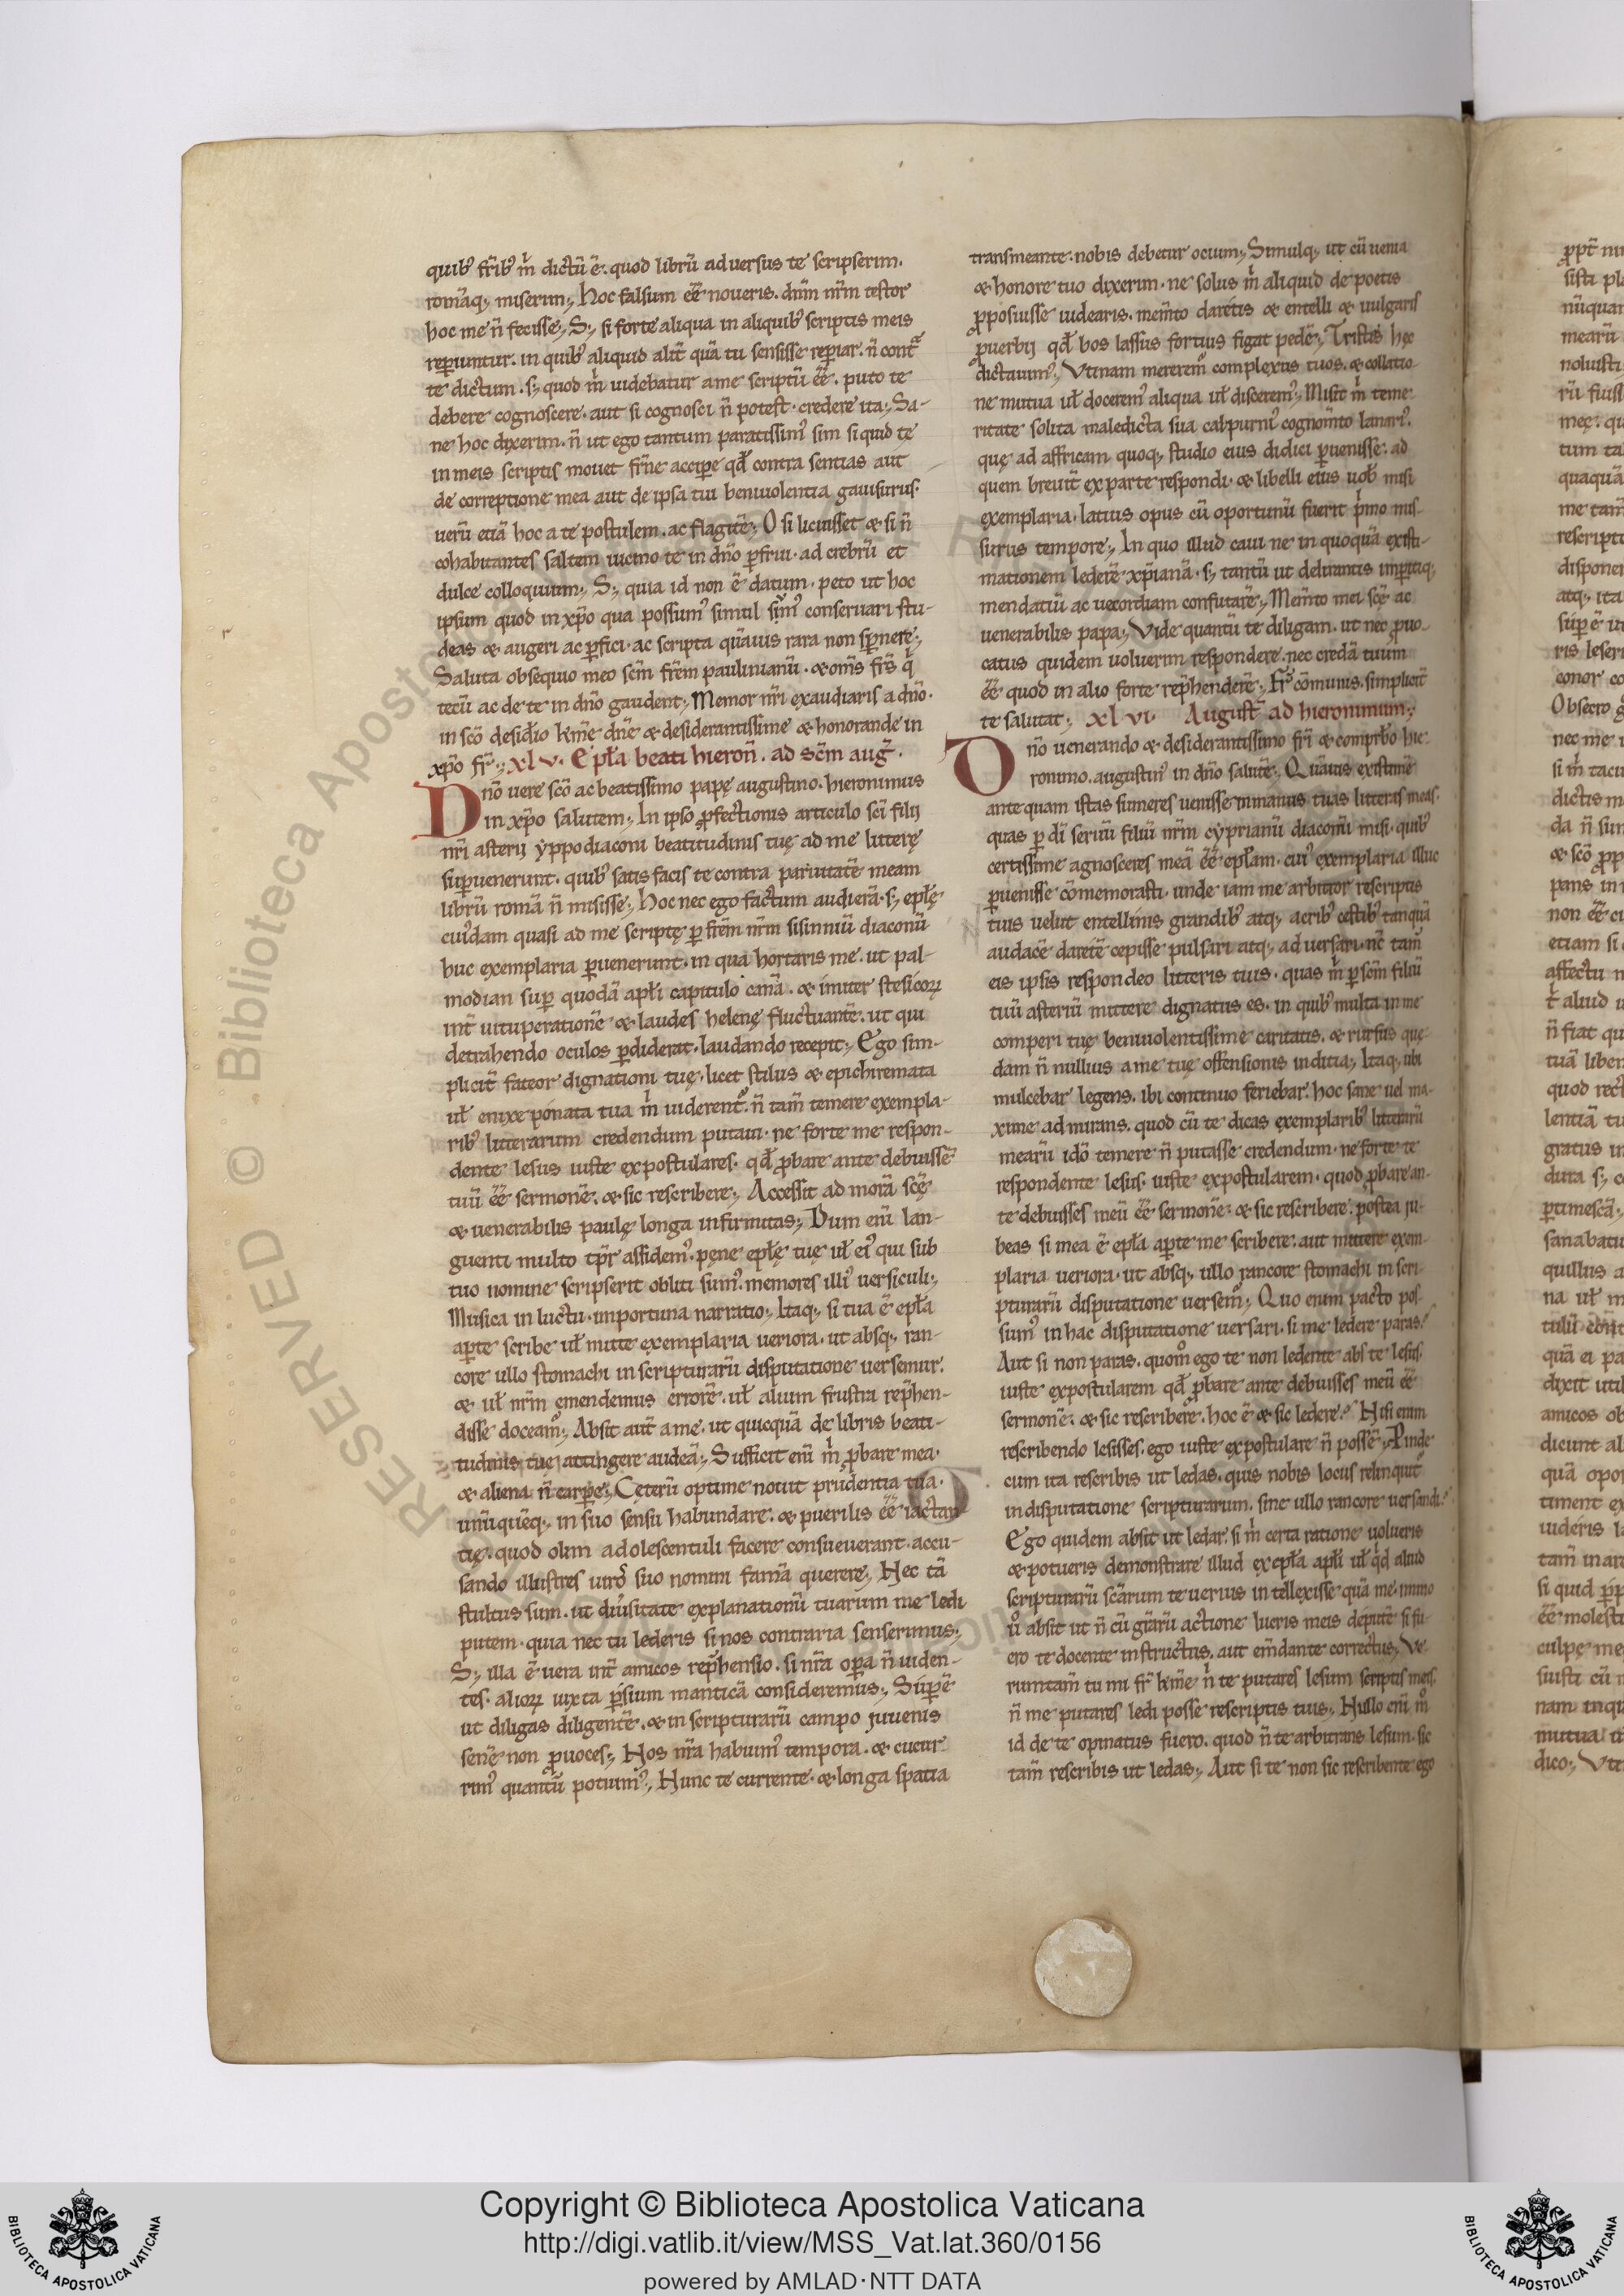 quib᷒ frīb᷒ m̊ dictū ē. quod librū aduersus te scripserim.
romāq; miserim; Hoc falsum eē̄ noueris. dnm̄ nrm̄ testor
hoc me n̄ fecisse; S; si forte aliqua in aliquib᷒ scriptis meis
reꝑiuntur. in quib᷒ aliquid alit̄ quā tu sensisse reꝑiar. n̄ contᷓ
te dictum. s; quod m̊ uidebatur a me scriptū eē̄. puto te
debere cognoscere. aut si cognosci n̄ potest. credere ita; Sa-
ne hoc dixerim. n̄ ut ego tantum paratissim᷒ sim si quid te
in meis scriptis mouet frn̄e accipe qđ contra sentias aut
de correptione mea aut de ipsa tui beniuolentia gauisurus.
uerū etiā hoc a te postulem. ac flagitē; O si licuisset & si n̄
cohabitantes saltem uicino te in dn̄o ꝑfrui. ad crebrū et
dulce colloquium; S; quia id non ē datum. peto ut hoc
ipsum quod in xp̄o qua possum᷒ simul sim᷒ conseruari stu-
deas & augeri ac ꝑfici. ac scripta quāuis rara non sꝑnere;
Saluta obsequio meo scm̄ frēm paulinianū. & om̄s frs̄ q̊
tecū ac de te in dn̄o gaudent; Memor nrī exaudiaris a dn̄o.
in scō desid̄io km̄e dn̄e & desiderantissime & honorande in
xp̄o fr̄; xlv. Epła beati hieroñ. ad Scm̄ aug̃.
Dn̄o uere scō ac beatissimo papę augustino. hieronimus
in xp̄o salutem; In ipso ꝓfectionis articulo scī filij
nrī asterij yppodiaconi beatitudinis tuę ad me litterę
suꝑuenerunt. quib᷒ satis facis te contra paruitatē meam
librū romā n̄ misisse; Hoc nec ego factum audierā. s; epłę
cui᷒dam quasi ad me scriptę ꝑ frēm nrm̄ sisinniū diaconū
huc exemplaria ꝑuenerunt. in qua hortaris me. ut pal-
modian suꝑ quodā apłi capitulo canā. & imiter stesicorꝝ
int̄ uituperationē & laudes helenę fluctuantē. ut qui
detrahendo oculos ꝑdiderat. laudando recepit; Ego sim-
plicit̄ fateor dignationi tuę. licet stilus & epichiremata
uł enixe ponata tua m̊ uiderent᷒. n̄ tam̄ temere exempla-
rib᷒ litterarum credendum putaui. ne forte me respon-
dente lesus iuste expostulares. qđ ꝓbare ante debuissē
tuū eē̄ sermonē. & sic rescribere; Accessit ad morā scę̄
& uenerabilis paulę longa infirmitas; Dum enī lan-
guenti multo tp̄r assidem᷒. pęne epłę tuę uł ei᷒ qui sub
tuo nomine scripserit obliti sum᷒. memores illi᷒ uersiculi;
Musica in luctu. importuna narratio; Itaq; si tua ē epła
aꝑte scribe uł mitte exemplaria ueriora. ut absq; ran-
core ullo stomachi in scripturarū disputatione uersemur.
& uł nrm̄ emendemus errorē. uł alium frustra reph̄en-
disse doceam᷒; Absit aut̄ a me. ut quicquā de libris beati-
tudinis tuę attingere audeā; Sufficit enī m̊ ꝓbare mea.
& aliena n̄ carꝑe; Cęterū optime nouit prudentia tua.
unūquēq; in suo sensu habundare. & puerilis eē̄ iactan
tię. quod olim adolescentuli facere consueuerant. accu-
sando illustres uiros suo nomini famā querere; Nec tā
stultus sum. ut diu᷒sitate explanationū tuarum me ledi
putem. quia nec tu lederis si nos contraria senserimus;
S; illa ē uera int̄ amicos reph̄ensio. si nrā oꝑa n̄ uiden-
tes. aliorꝝ iuxta ꝑsium manticā consideremus; Suꝑē
ut diligas diligentē. & in scripturarū campo iuuenis
senē non ꝓuoces; Nos nrā habuim᷒ tempora. & cucur-
rim᷒ quantū potuim᷒; Nunc te currente & longa spatia
transmeante. nobis debetur ocium; Simulq; ut cū uenia
& honore tuo dixerim. ne solus m̊ aliquid de poetis
ꝓposuisse uidearis. mem̄to daretis & entelli & uulgaris
ꝓuerbij qđ bos lassus fortius figat pedē; Tristes hęc
dictauim᷒; Vtinam mererem᷒ complexus tuos. & collatio-
ne mutua uł docerem᷒ aliqua uł discerem᷒; Misit m̊ teme-
ritate solita maledicta sua calpurni᷒ cognom̄to lanari᷒.
quę ad affricam quoq; studio eius didici ꝑuenisse. ad
quem breuit̄ ex parte respondi. & libelli eius uob᷒ misi
exemplaria. latius opus cū oportunū fuerit p̊mo mis-
surus tempore; In quo illud caui ne in quoquā existi-
mationem lederē xp̄ianā. s; tantū ut delirantis imꝑitiq;
mendatiū ac uecordiam confutarē; Mem̄to mei scę̄ ac
uenerabilis papa; Vide quantū te diligam. ut nec ꝓuo-
catus quidem uoluerim respondere. nec credā tuum
eē̄ quod in alio forte reph̄enderē; Fr̄ com̄unis. simplicit̄
te salutat; xlvi. August̄ ad hieronimum;
Dn̄o uenerando & desiderantissimo frī & compr̄bō hie-
ronimo. augustin᷒ in dn̄o salutē; Quāuis existimē
antequam istas sumeres uenisse in manus tuas litteras meas.
quas ꝑ dī seruū filiū nrm̄ cyprianū diaconū misi. quib᷒
certissime agnosceres meā eē̄ epłam. cui᷒ exemplaria illuc
ꝑuenisse com̄emorasti. unde iam me arbitror rescriptis
tuis uelut entellinis grandib᷒ atq; acrib᷒ cestib᷒ tanquā
audacē daretē cepisse pulsari atq; aduersari. nc̄ tam̄
eis ipsis respondeo litteris tuis. quas m̊ ꝑ scm̄ filiū
tuū asteriū mittere dignatus es. in quib᷒ multa in me
comperi tuę beniuolentissime caritatis. & rursus quę-
dam n̄ nullius a me tuę offensionis inditia; Itaq; ubi
mulcebar legens. ibi continuo feriebar. hoc sane uel ma-
xime admirans. quod cū te dicas exemplarib᷒ litterarū
mearū idō temere n̄ putasse credendum. ne forte te
respondente lesus. iuste expostularem. quod ꝓbare an-
te debuisses meū eē̄ sermonē. & sic rescribere. postea iu-
beas si mea ē epła aꝑte me scribere. aut mittere exem-
plaria ueriora. ut absq; ullo rancore stomachi in scri-
pturarū disputatione uersem᷒; Quo enim pacto pos-
sum᷒ in hac disputatione uersari. si me ledere paras?
Aut si non paras. quom̊ ego te non ledente abs te lesus.
iuste expostularem qđ ꝓbare ante debuisses meū eē̄
sermonē. & sic rescribere. hoc ē & sic ledere? Nisi enim
rescribendo lesisses. ego iuste expostulare n̄ possē; Proinde
cum ita rescribis ut ledas. quis nobis locus relinquit᷒
in disputatione scripturarum. sine ullo rancore uersandi?
Ego quidem absit ut ledar. si m̊ certa ratione uolueris
& potueris demonstrare illud ex epła apłi uł qđ aliud
scripturarū scārum te uerius intellexisse quā me. immo
u᷒ absit ut n̄ cū gr̄arū actione lucris meis deputē si fu-
ero te docente instructus. aut emd̄ante correctus; Ve-
rumtam̄ tu mi fr̄ km̄e n̊ te putares lesum scriptis meis.
n̄ me putares ledi posse rescriptis tuis; Nullo enī m̊
id de te opinatus fuero. quod n̄ te arbitrans lesum. sic
tam̄ rescribis ut ledas; Aut si te non sic rescribente ego
Copyright © Biblioteca Apostolica Vaticana
http://digi.vatlib.it/view/MSS_Vat.lat.360/0156
powered by AMLAD·NTT DATA